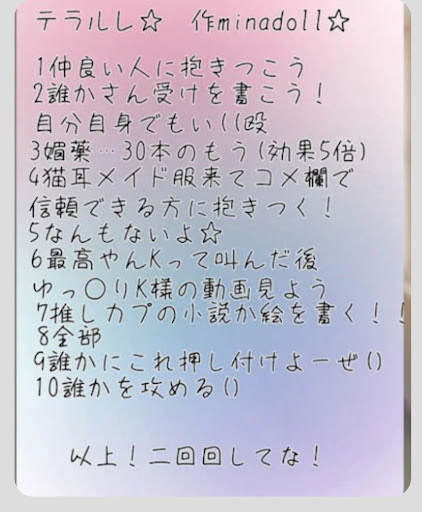 テラルし☆　作minadoll☆
1仲良い人に抱きつこう
2誰かさん受けを書こう！
自分自身でもい((殴
3媚薬…30本のもう(効果5倍)
4猫耳メイド服来てコメ欄で
信頼できる方に抱きつく！
5なんもないよ☆
6最高やんKって叫んだ後
ゆっ〇りK様の動画見よう
7推しカプの小説か絵を書く！！
8全部
9誰かにこれ押し付けよーぜ()
10誰かを攻める()
以上！二回回してな！